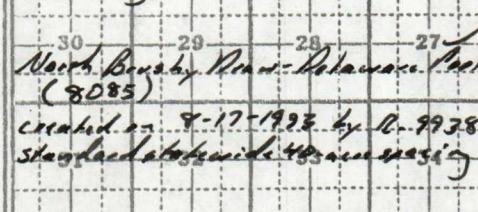 30 29 28 27
North Brushy Draw-Delaware Pool
(8085)
created on 8-17-1993 by R-9938
standard statewide 40-acre spacing
31 32 33 34